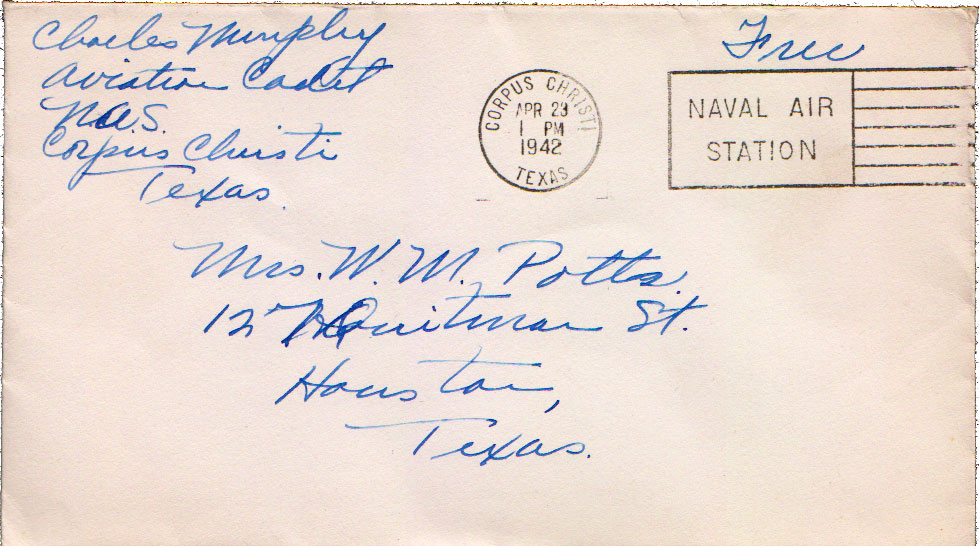 Charles Murphy
Aviation Cadet
N.A.S.
Corpus Christi
Texas.
Free
CORPUS CHRISTI
APR 23
1 PM
1942
TEXAS
NAVAL AIR
STATION
Mrs. W. M. Potts.
Quitman St.
Houston,
Texas.